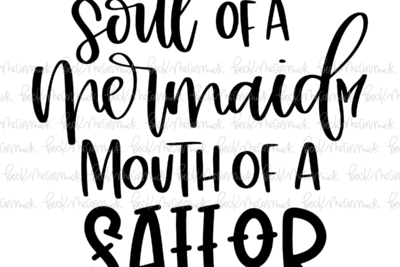 Soul OF A
mermaid
MOUTH OF A
SAILOR